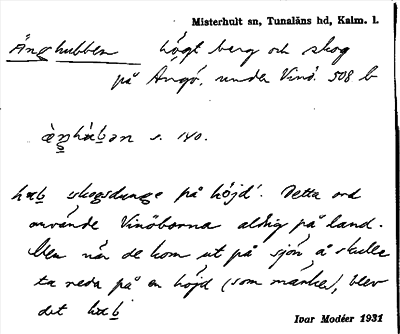 Misterhult sn, Tunaläns hd, Kalm. l.
Ängkubben högt berg och skog
på Ängö, under Vinö. 508 b
s. 140.
skogsdunge på höjd'. Detta ord
använde Vinöborna aldrig på land.
Men när de kom ut på sjön å skulle
ta reda på en höjd (som märke), blev
det
Ivar Modéer 1931